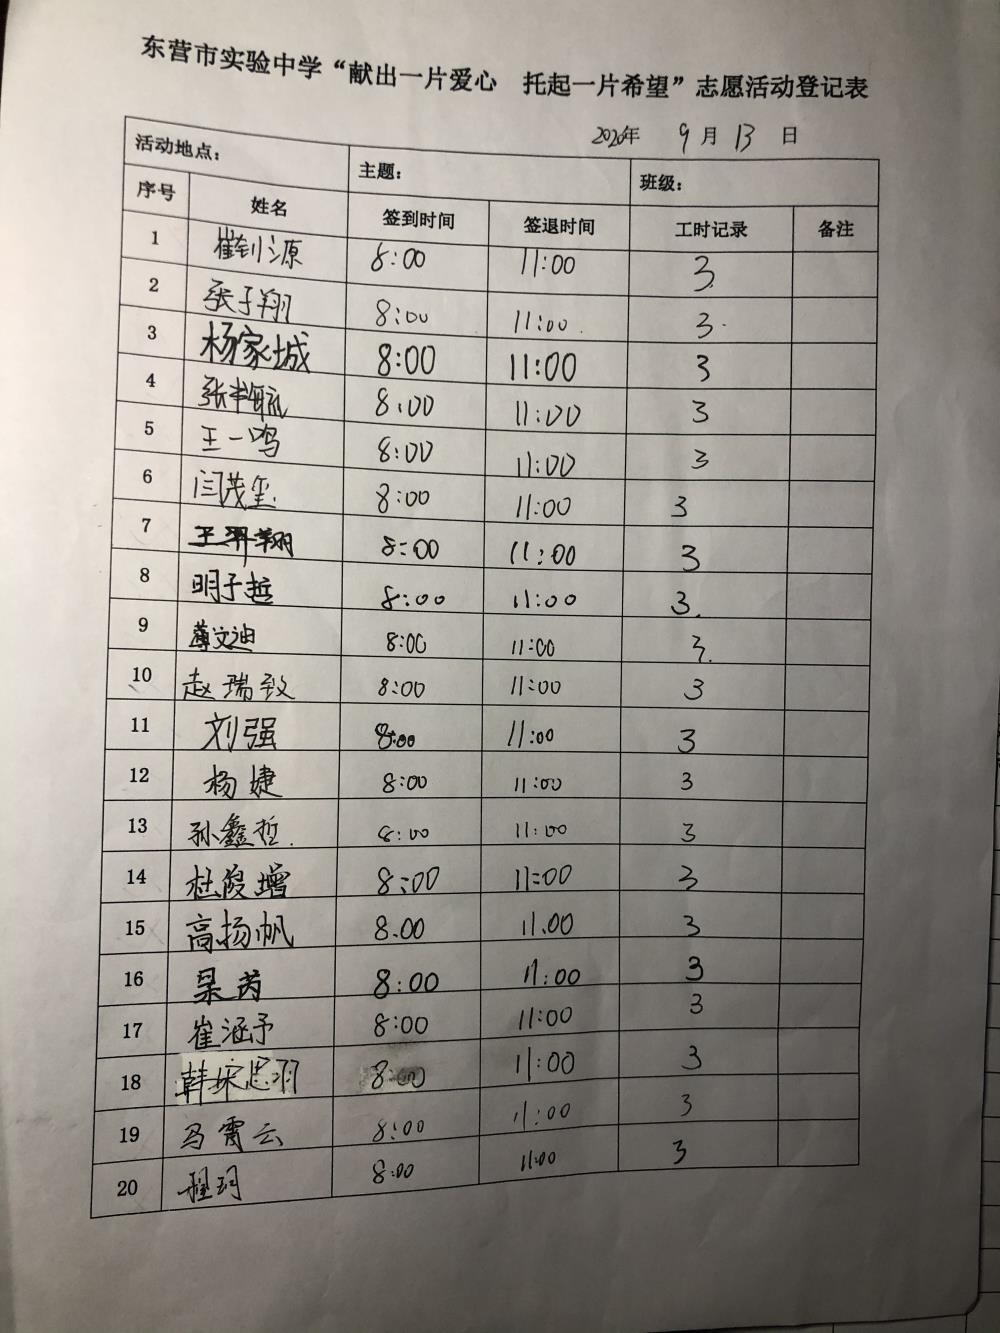 东营市实验中学“献出一片爱心 托起一片希望”志愿活动登记表
2020年 9月 13 日
活动地点： 主题： 班级：
序号 姓名 签到时间 签退时间 工时记录 备注
1 崔钊源 8:00 11:00 3
2 张子翔 8:00 11:00 3
3 杨家城 8:00 11:00 3
4 张书航 8:00 11:00 3
5 王一鸣 8:00 11:00 3
6 闫茂玺 8:00 11:00 3
7 王羿翔 8:00 11:00 3
8 明子哲 8:00 11:00 3
9 文迪 8:00 11:00 3
10 赵瑞致 8:00 11:00 3
11 刘强 8:00 11:00 3
12 杨婕 8:00 11:00 3
13 孙鑫哲 8:00 11:00 3
14 杜俊增 8:00 11:00 3
15 高扬帆 8.00 11.00 3
16 芮 8:00 11:00 3
17 崔涵予 8:00 11:00 3
18 韩宋思羽 8:00 11:00 3
19 马霄云 8:00 11:00 3
20 程珂 8:00 11:00 3